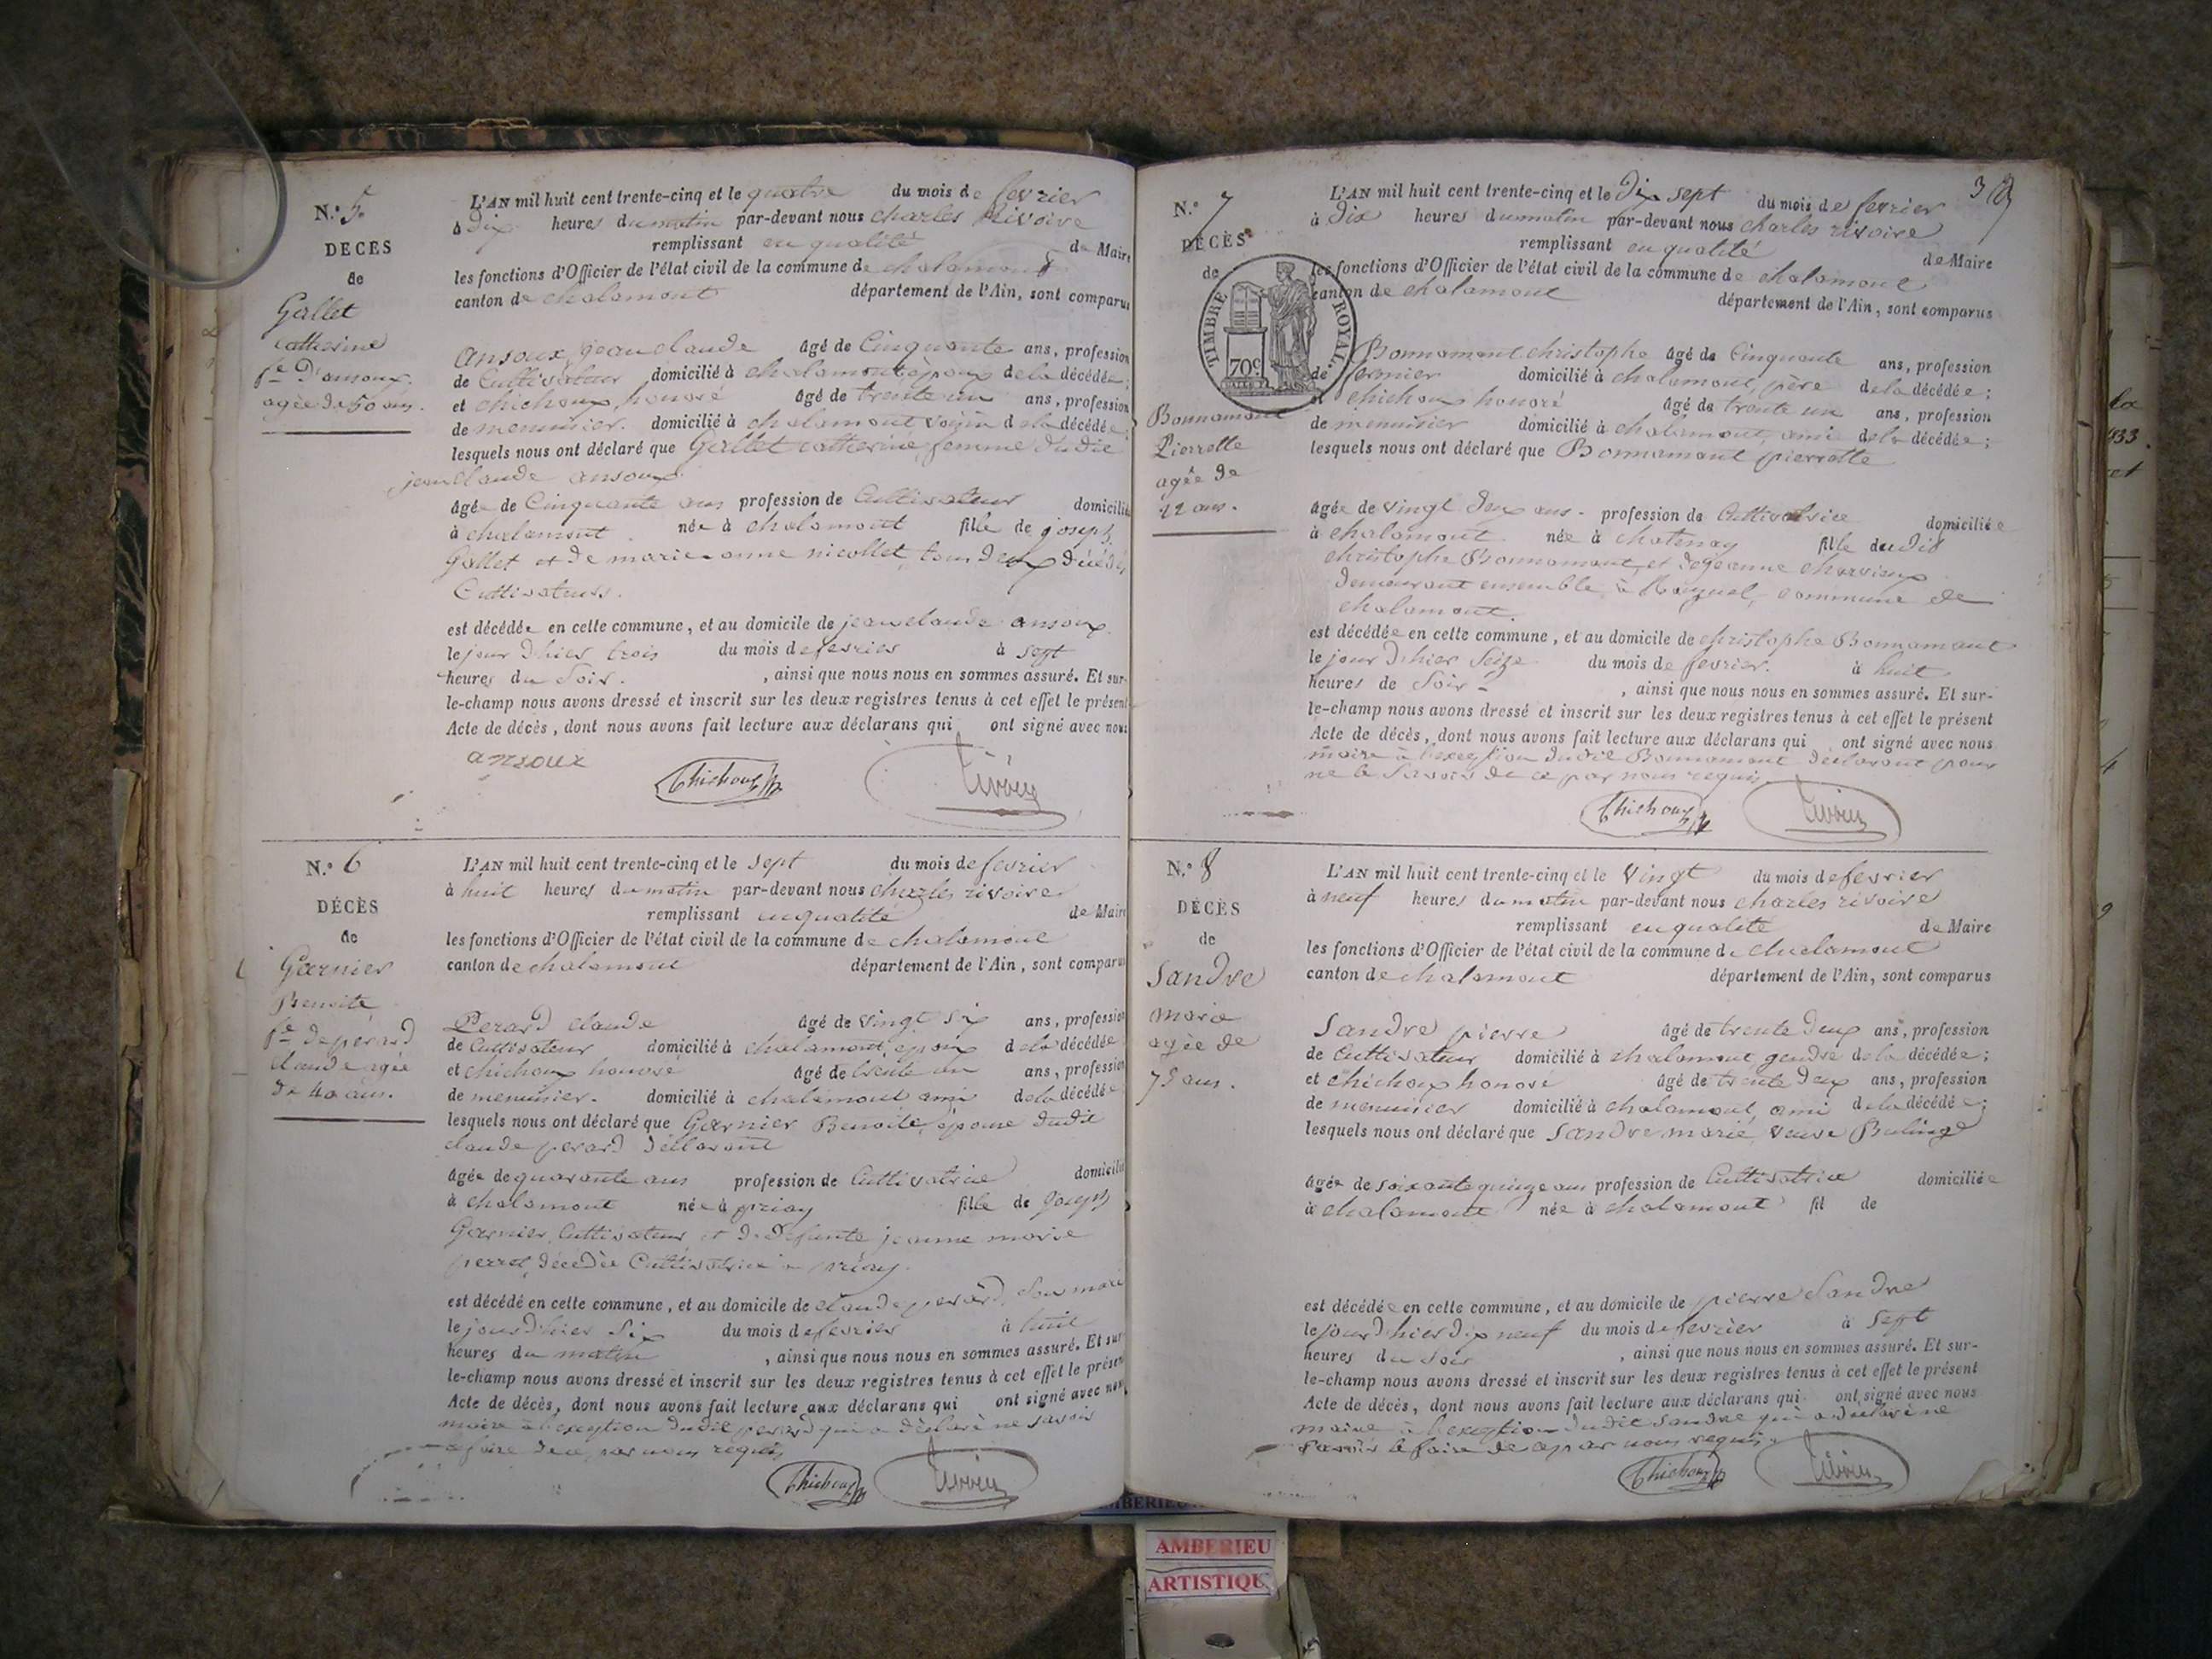 N.° 5.
DÉCÈS
de
Gallet
Catherine
fe d'ansoux.
agée de 50 ans.
L'AN mil huit cent trente-cinq et le quatre du mois de fevrier
à dix heures du matin par-devant nous charles Rivoire
remplissant en qualité de Maire
les fonctions d'Officier de l'état civil de la commune de chalamont
canton de chalamont département de l'Ain, sont comparus
ansoux jean claude âgé de Cinquante ans, profession
de Cultivateur domicilié à chalamont époux de la décédée;
et chichoux honoré âgé de trente un ans, profession
de menuisier. domicilié à chalamont voisin de la décédée;
lesquels nous ont déclaré que Gallet catherine, femme dudit
jean claude ansoux.
âgée de Cinquante ans profession de Cultivateur domicilié
à chalamont née à chalamont fille de joseph
Gallet et de marie anne nicollet, tous deux décédés
Cultivateurs.
est décédée en cette commune, et au domicile de jean claude ansoux
le jour d'hier trois du mois de fevrier à sept
heures du soir. , ainsi que nous nous en sommes assuré. Et sur-
le-champ nous avons dressé et inscrit sur les deux registres tenus à cet effet le présent
Acte de décès, dont nous avons fait lecture aux déclarans qui ont signé avec nous
ansoux Chichoux rivoire
N.° 6
DÉCÈS
de
Garnier
Benoite
fe de perard
claude agée
de 40 ans.
L'AN mil huit cent trente-cinq et le sept du mois de fevrier
à huit heures du matin par-devant nous charles rivoire
remplissant en qualité de Maire
les fonctions d'Officier de l'état civil de la commune de chalamont
canton de chalamont département de l'Ain, sont comparus
Perard claude âgé de vingt six ans, profession
de Cultivateur domicilié à chalamont, époux de la décédée
et chichoux honoré âgé de trente un ans, profession
de menuisier. domicilié à chalamont ami de la décédée
lesquels nous ont déclaré que Garnier Benoite, épouse dudit
claude perard déclarant
âgée de quarante ans profession de Cultivatrice domicilié
à chalamont née à priay fille de Joseph
Garnier, Cultivateur et de defunte jeanne marie
perret, décédée Cultivatrice à priay.
est décédé en cette commune, et au domicile de claude perard, son mari
le jour d'hier six du mois de fevrier à huit
heures du matin , ainsi que nous nous en sommes assuré. Et sur-
le-champ nous avons dressé et inscrit sur les deux registres tenus à cet effet le présent
Acte de décès, dont nous avons fait lecture aux déclarans qui ont signé avec nous
maire à l'exeption dudit perard qui a déclaré ne savoir
le faire de ce par nous requis
Chichoux rivoire
38
N.° 7
DÉCÈS
de
TIMBRE ROYAL.
70c
Bonnamant
Pierrette
agée de
22 ans.
L'AN mil huit cent trente-cinq et le Dix sept du mois de fevrier
à dix heures du matin par-devant nous charles rivoire
remplissant en qualité de Maire
les fonctions d'Officier de l'état civil de la commune de chalamont
canton de chalamont département de l'Ain, sont comparus
Bonnamant christophe âgé de Cinquante ans, profession
de fermier domicilié à chalamont, père de la décédée;
et chichoux honoré âgé de trente un ans, profession
de menuisier domicilié à chalamont, ami de la décédée;
lesquels nous ont déclaré que Bonnamant pierrette
âgée de vingt deux ans - profession de Cultivatrice domiciliée
à chalamont née à chatenay fille dudit
christophe Bonnamant, et de jeanne
demeurant ensemble à commune de
chalamont.
est décédée en cette commune, et au domicile de christophe Bonnamant
le jour d'hier seize du mois de fevrier. à huit
heures de soir - , ainsi que nous nous en sommes assuré. Et sur-
le-champ nous avons dressé et inscrit sur les deux registres tenus à cet effet le présent
Acte de décès, dont nous avons fait lecture aux déclarans qui ont signé avec nous
maire à l'exeption dudit Bonnamant déclarant pour
ne le savoir de ce par nous requis
Chichoux rivoire
N.° 8
DÉCÈS
de
Sandre
marie
agée de
75 ans.
L'AN mil huit cent trente-cinq et le Vingt du mois de fevrier
à neuf heures du matin par-devant nous charles rivoire
remplissant en qualité de Maire
les fonctions d'Officier de l'état civil de la commune de chalamont
canton de chalamont département de l'Ain, sont comparus
Sandre pierre âgé de trente deux ans, profession
de Cultivateur domicilié à chalamont, gendre de la décédée;
et chichoux honoré âgé de trente deux ans, profession
de menuisier domicilié à chalamont, ami de la décédée;
lesquels nous ont déclaré que Sandre marie, veuve
âgée de soixante quinze ans profession de Cultivatrice domiciliée
à chalamont née à chalamont fil de
est décédée en cette commune, et au domicile de pierre Sandre
le jour d'hier dix neuf du mois de fevrier à sept
heures du soir , ainsi que nous nous en sommes assuré. Et sur-
le-champ nous avons dressé et inscrit sur les deux registres tenus à cet effet le présent
Acte de décès, dont nous avons fait lecture aux déclarans qui ont signé avec nous
maire à l'exeption dudit Sandre qui a déclaré ne
savoir le faire de ce par nous requis.
Chichoux rivoire
AMBERIEU
ARTISTIQUE